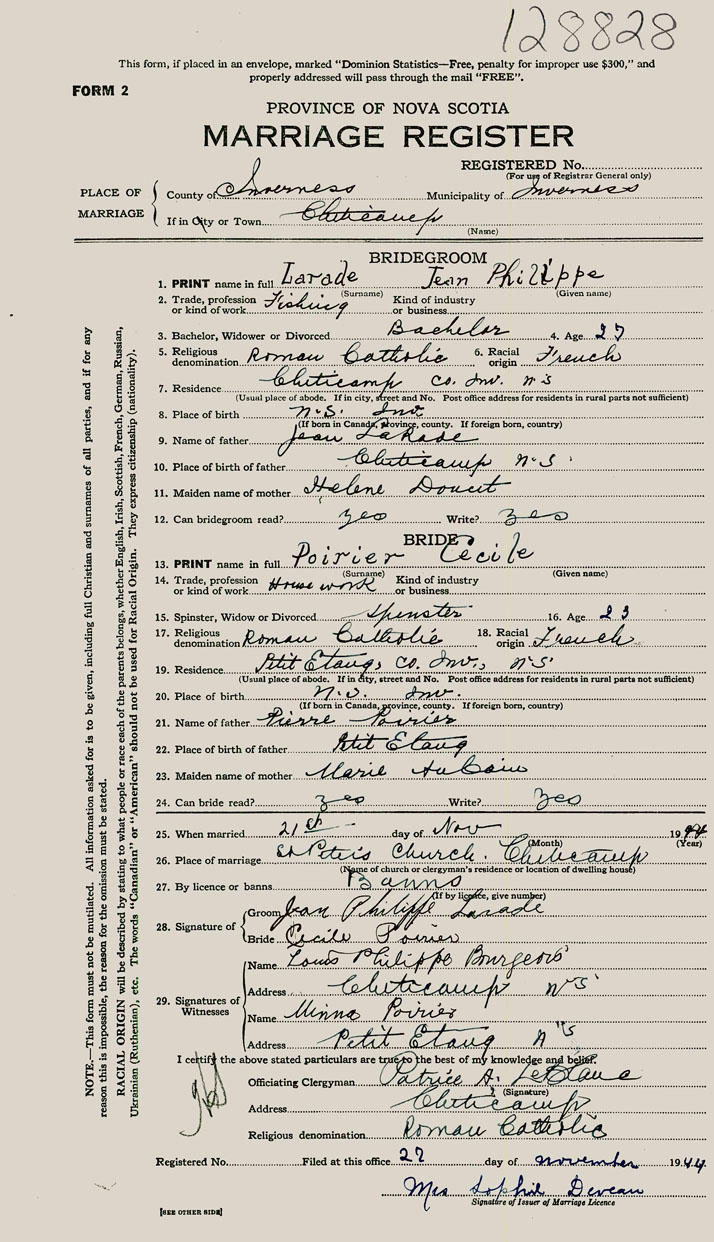 128828
This form, if placed in an envelope, marked "Dominion Statistics—Free, penalty for improper use $300," and
properly addressed will pass through the mail "FREE".
FORM 2
PROVINCE OF NOVA SCOTIA
MARRIAGE REGISTER
REGISTERED No.
(For use of Registrar General only)
PLACE OF MARRIAGE
County of Inverness Municipality of Inverness
If in City or Town Cheticamp
(Name)
BRIDEGROOM
1. PRINT name in full Larade Jean Philippe
(Surname) (Given name)
2. Trade, profession or kind of work Fishing Kind of industry or business
3. Bachelor, Widower or Divorced Bachelor 4. Age 27
5. Religious denomination Roman Catholic 6. Racial origin French
7. Residence Cheticamp Co. Inv. N S
(Usual place of abode. If in city, street and No. Post office address for residents in rural parts not sufficient)
8. Place of birth N.S. Inv
(If born in Canada, province, county. If foreign born, country)
9. Name of father Jean LaRade
10. Place of birth of father Cheticamp N.S.
11. Maiden name of mother Helene Doucet
12. Can bridegroom read? yes Write? yes
BRIDE
13. PRINT name in full Poirier Cecile
(Surname) (Given name)
14. Trade, profession or kind of work House work Kind of industry or business
15. Spinster, Widow or Divorced Spinster 16. Age 23
17. Religious denomination Roman Catholic 18. Racial origin French
19. Residence Petit Etang, Co. Inv., N.S.
(Usual place of abode. If in city, street and No. Post office address for residents in rural parts not sufficient)
20. Place of birth N.S. Inv.
(If born in Canada, province, county. If foreign born, country)
21. Name of father Pierre Poirier
22. Place of birth of father Petit Etang
23. Maiden name of mother Marie AuCoin
24. Can bride read? yes Write? yes
25. When married 21st day of Nov 1944
(Month) (Year)
26. Place of marriage St Peter's Church. Cheticamp
(Name of church or clergyman's residence or location of dwelling house)
27. By licence or banns Banns
(If by licence, give number)
28. Signature of
Groom Jean Philippe Larade
Bride Cecile Poirier
29. Signatures of Witnesses
Name Louis Philippe Bourgeois
Address Cheticamp N S
Name Minna Poirier
Address Petit Etang N S
I certify the above stated particulars are true to the best of my knowledge and belief.
Officiating Clergyman Patrice A. LeBlanc
(Signature)
Address Cheticamp
Religious denomination Roman Catholic
Registered No. Filed at this office 27 day of November 1944
Mrs Sophie Deveau
Signature of Issuer of Marriage Licence
[SEE OTHER SIDE]
NOTE.—This form must not be mutilated. All information asked for is to be given, including full Christian and surnames of all parties, and if for any
reason this is impossible, the reason for the omission must be stated.
RACIAL ORIGIN will be described by stating to what people or race each of the parents belongs, whether English, Irish, Scottish, French, German, Russian,
Ukrainian (Ruthenian), etc. The words "Canadian" or "American" should not be used for Racial Origin. They express citizenship (nationality).